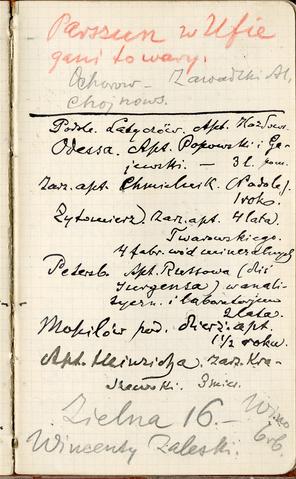 Parszun w Ufie
gani towary.
Ochorow - Zawadzki Al,
Chojnows.
Podole. Latyczów. Apt. Kozłows.
Odessa. Apt. Popowski i Ga-
jewski. — 3 l. pom.
Zarz. apt. Chmielnik. (Podole).
1 rok.
Żytomierz). Zarz. apt. 4 lata.
Twarowskiego.
4 fabr. wód mineralnych
Petersb. Apt. Russowa (dziś
Jurgensa) w anali-
tyczn. i laboratorjum
2 lata.
Mohilów pod. dzierż. apt.
1 1/2 roku.
Apt. Heinricha. Zarz. Kra-
szewski. 3 mies.
Zielna 16. —
Wincenty Zaleski.
Wino